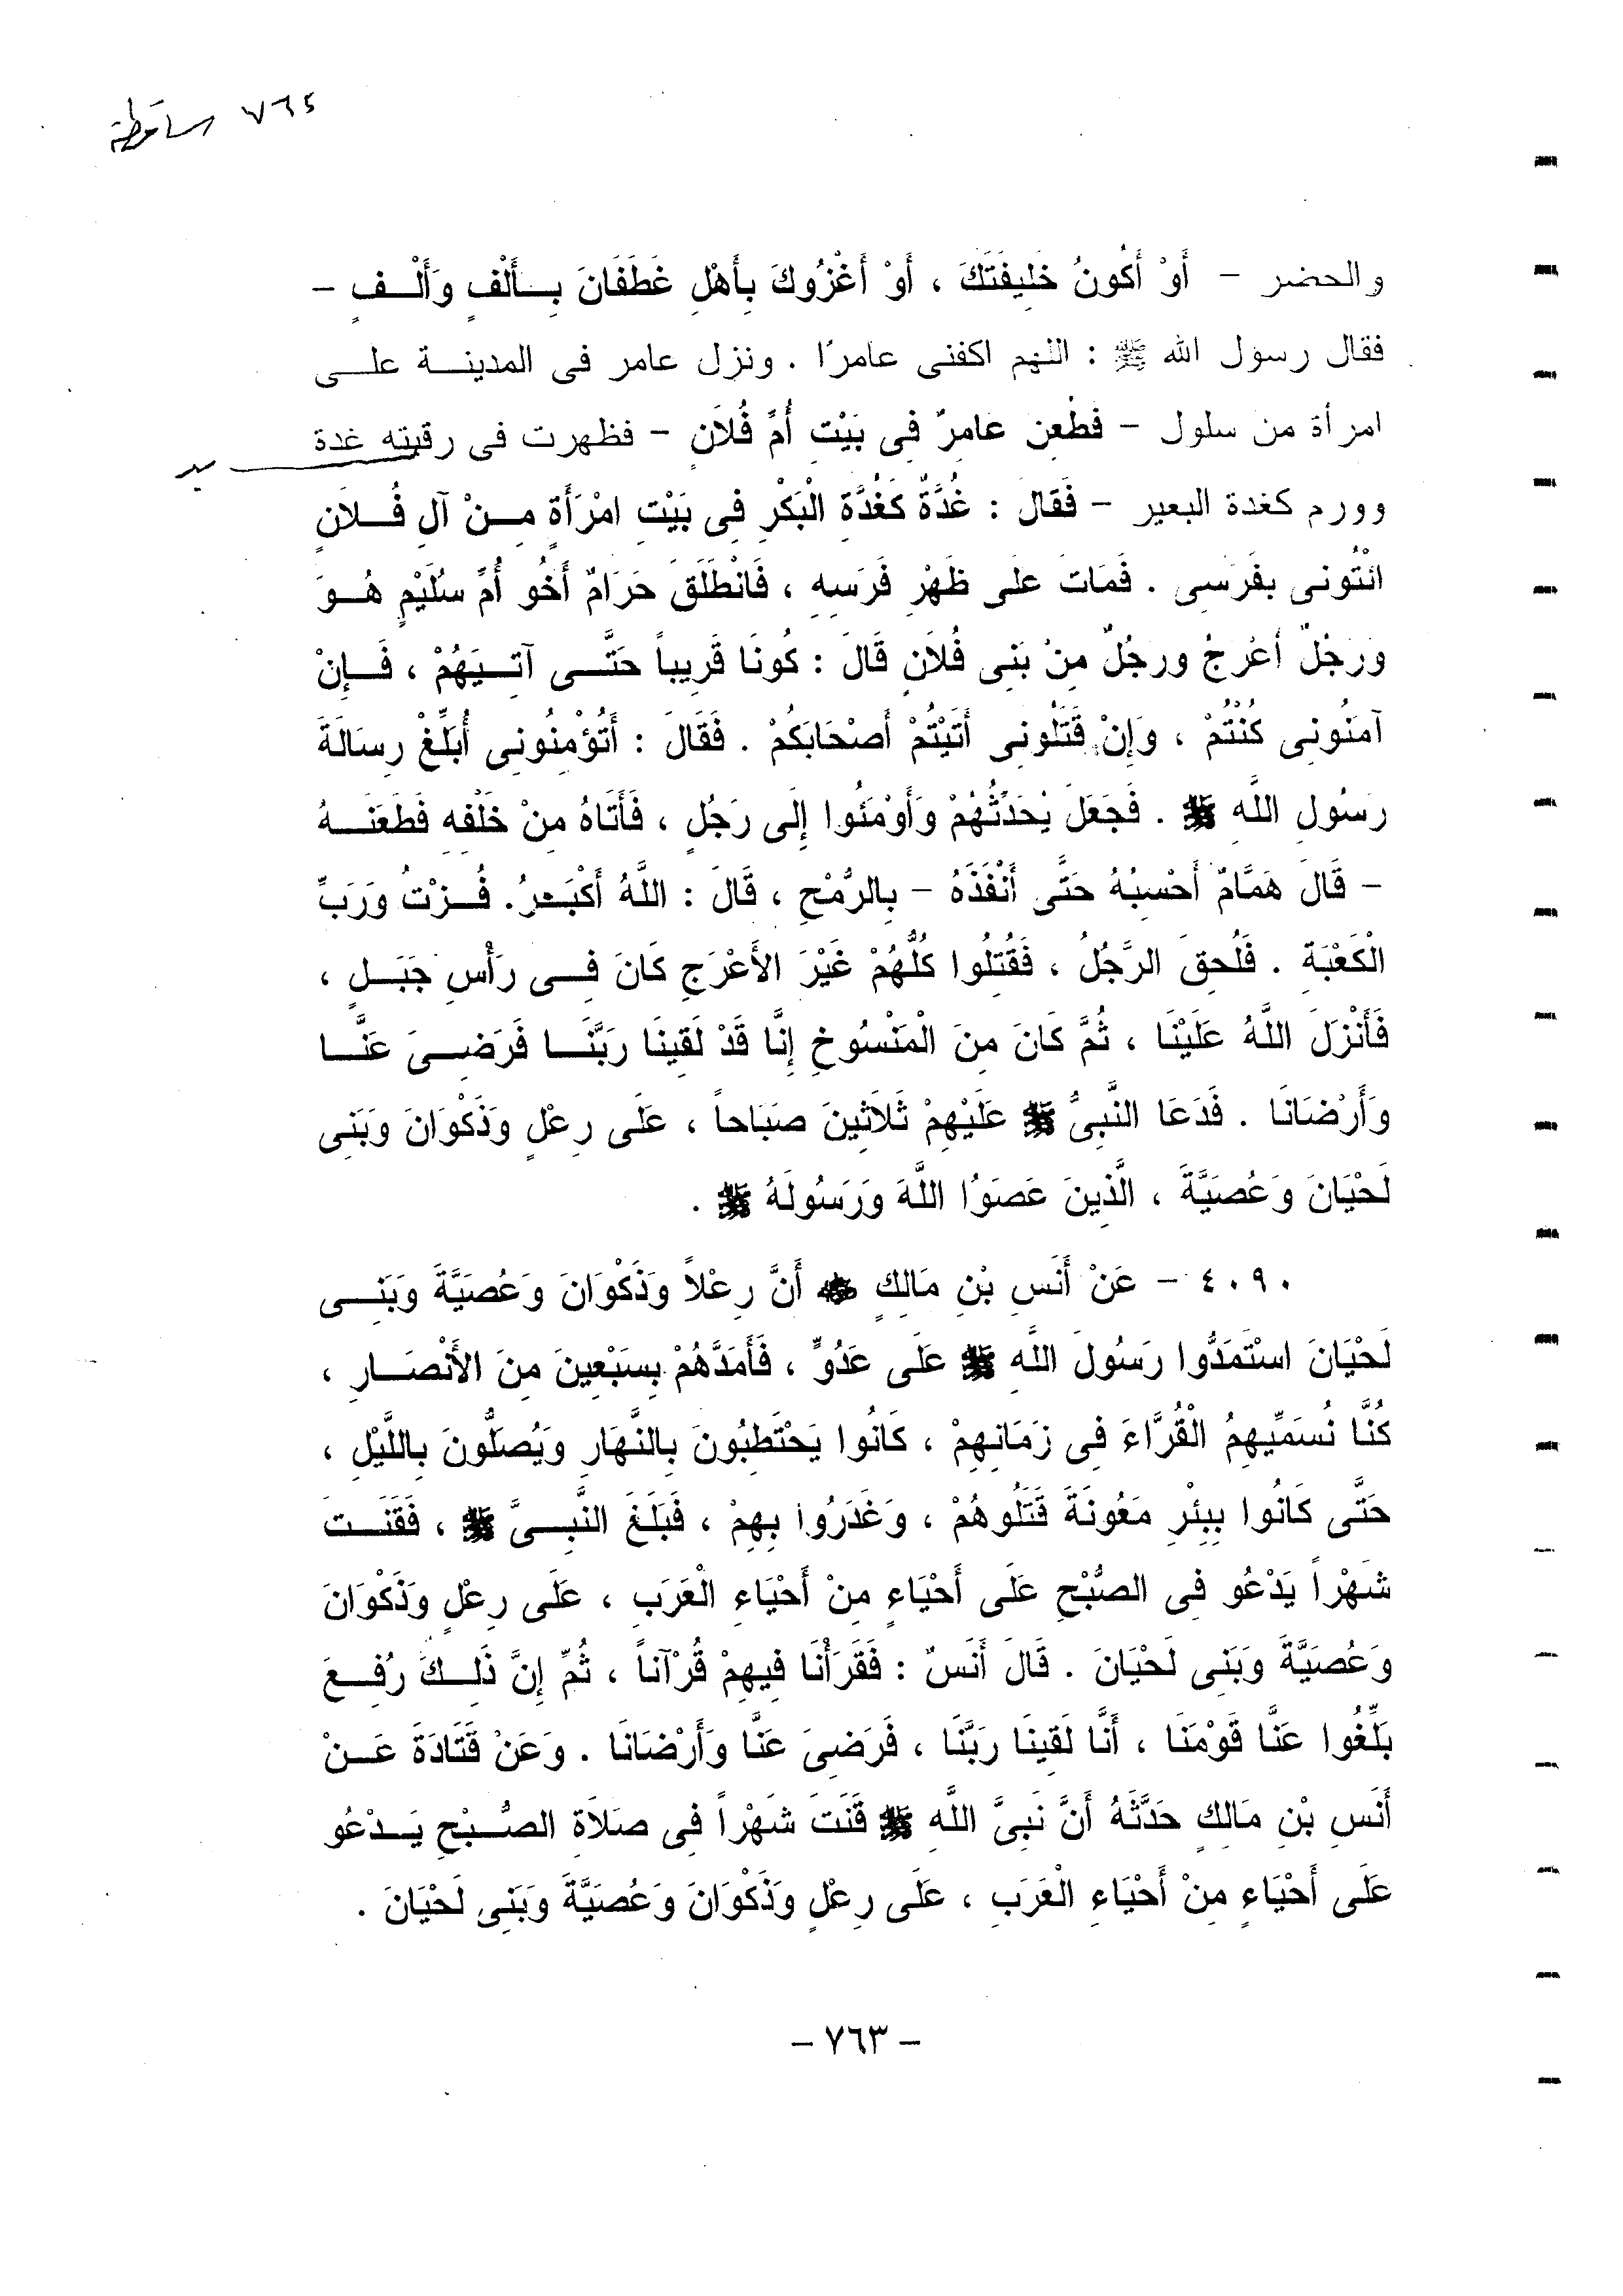 ٧٦٤ ساقطة
والحضر - أَوْ أَكُونُ خَلِيفَتَكَ ، أَوْ أَغْزُوكَ بِأَهْلِ غَطَفَانَ بِأَلْفٍ وَأَلْفٍ -
فقال رسول الله ﷺ : اللهم اكفنى عامرًا . ونزل عامر فى المدينة على
امرأة من سلول - فَطُعِنَ عَامِرٌ فِى بَيْتِ أُمِّ فُلَانٍ - فظهرت فى رقبته غدة
وورم كغدة البعير - فَقَالَ : غُدَّةٌ كَغُدَّةِ الْبَكْرِ فِى بَيْتِ امْرَأَةٍ مِنْ آلِ فُلَانٍ
ائْتُونِى بِفَرَسِى . فَمَاتَ عَلَى ظَهْرِ فَرَسِهِ ، فَانْطَلَقَ حَرَامٌ أَخُو أُمِّ سُلَيْمٍ هُوَ
وَرَجُلٌ أَعْرَجُ وَرَجُلٌ مِنْ بَنِى فُلَانٍ قَالَ : كُونَا قَرِيباً حَتَّى آتِيَهُمْ ، فَإِنْ
آمَنُونِى كُنْتُمْ ، وَإِنْ قَتَلُونِى أَتَيْتُمْ أَصْحَابَكُمْ . فَقَالَ : أَتُؤْمِنُونِى أُبَلِّغْ رِسَالَةَ
رَسُولِ اللَّهِ ﷺ . فَجَعَلَ يُحَدِّثُهُمْ وَأَوْمَئُوا إِلَى رَجُلٍ ، فَأَتَاهُ مِنْ خَلْفِهِ فَطَعَنَهُ
- قَالَ هَمَّامٌ أَحْسِبُهُ حَتَّى أَنْفَذَهُ - بِالرُّمْحِ ، قَالَ : اللَّهُ أَكْبَرُ. فُزْتُ وَرَبِّ
الْكَعْبَةِ . فَلُحِقَ الرَّجُلُ ، فَقُتِلُوا كُلُّهُمْ غَيْرَ الأَعْرَجِ كَانَ فِى رَأْسِ جَبَلٍ ،
فَأَنْزَلَ اللَّهُ عَلَيْنَا ، ثُمَّ كَانَ مِنَ الْمَنْسُوخِ إِنَّا قَدْ لَقِينَا رَبَّنَا فَرَضِىَ عَنَّا
وَأَرْضَانَا . فَدَعَا النَّبِىُّ ﷺ عَلَيْهِمْ ثَلَاثِينَ صَبَاحاً ، عَلَى رِعْلٍ وَذَكْوَانَ وَبَنِى
لَحْيَانَ وَعُصَيَّةَ ، الَّذِينَ عَصَوُا اللَّهَ وَرَسُولَهُ ﷺ .
٤٠٩٠ - عَنْ أَنَسِ بْنِ مَالِكٍ ﷺ أَنَّ رِعْلاً وَذَكْوَانَ وَعُصَيَّةَ وَبَنِى
لَحْيَانَ اسْتَمَدُّوا رَسُولَ اللَّهِ ﷺ عَلَى عَدُوٍّ ، فَأَمَدَّهُمْ بِسَبْعِينَ مِنَ الأَنْصَارِ ،
كُنَّا نُسَمِّيهِمُ الْقُرَّاءَ فِى زَمَانِهِمْ ، كَانُوا يَحْتَطِبُونَ بِالنَّهَارِ وَيُصَلُّونَ بِاللَّيْلِ ،
حَتَّى كَانُوا بِبِئْرِ مَعُونَةَ قَتَلُوهُمْ ، وَغَدَرُوا بِهِمْ ، فَبَلَغَ النَّبِىَّ ﷺ ، فَقَنَتَ
شَهْراً يَدْعُو فِى الصُّبْحِ عَلَى أَحْيَاءٍ مِنْ أَحْيَاءِ الْعَرَبِ ، عَلَى رِعْلٍ وَذَكْوَانَ
وَعُصَيَّةَ وَبَنِى لَحْيَانَ . قَالَ أَنَسٌ : فَقَرَأْنَا فِيهِمْ قُرْآناً ، ثُمَّ إِنَّ ذَلِكَ رُفِعَ
بَلِّغُوا عَنَّا قَوْمَنَا ، أَنَّا لَقِينَا رَبَّنَا ، فَرَضِىَ عَنَّا وَأَرْضَانَا . وَعَنْ قَتَادَةَ عَنْ
أَنَسِ بْنِ مَالِكٍ حَدَّثَهُ أَنَّ نَبِىَّ اللَّهِ ﷺ قَنَتَ شَهْراً فِى صَلَاةِ الصُّبْحِ يَدْعُو
عَلَى أَحْيَاءٍ مِنْ أَحْيَاءِ الْعَرَبِ ، عَلَى رِعْلٍ وَذَكْوَانَ وَعُصَيَّةَ وَبَنِى لَحْيَانَ .
- ٧٦٣ -